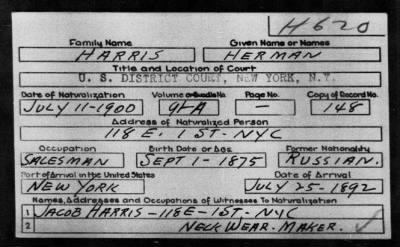 H620
Family Name Given Name or Names
HARRIS HERMAN
Title and Location of Court
U. S. DISTRICT COURT, NEW YORK, N.Y.
Date of Naturalization Volume or Bundle No. Page No. Copy of Record No.
JULY 11-1900 91-A — 148
Address of Naturalized Person
118 E. 1 ST-NYC
Occupation Birth Date or Age Former Nationality
SALESMAN SEPT 1-1875 RUSSIAN.
Port of Arrival in the United States Date of Arrival
NEW YORK JULY 25-1892
Names, Addresses and Occupations of Witnesses To Naturalization
1 JACOB HARRIS-118E-1ST-NYC
2 NECK WEAR-MAKER.